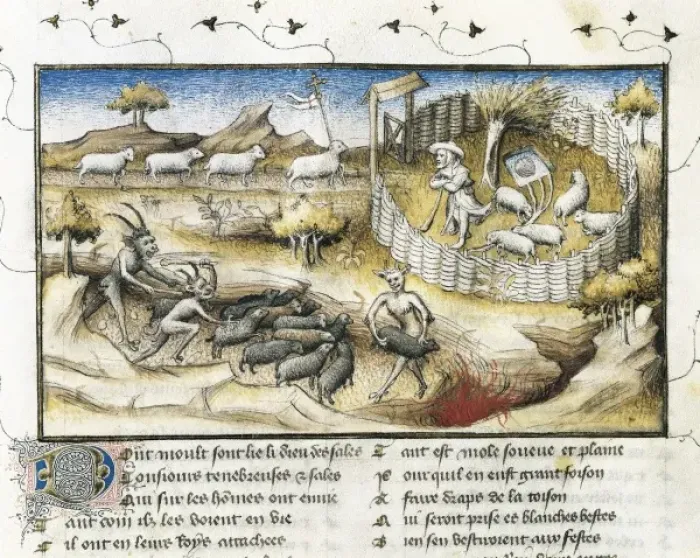 Dont moult sont lie li dieu des sales
Tousiours tenebreuses & sales
Qui sur les hommes ont enuie
Tant com ilz les voient en vie
il ont en leurs roys attachees
Tant est mole soueue et plaine
Pour quil en eust grant foison
A faire draps de la toison
Qui seroit prise es blanches bestes
Bien sen vestiroient aux festes